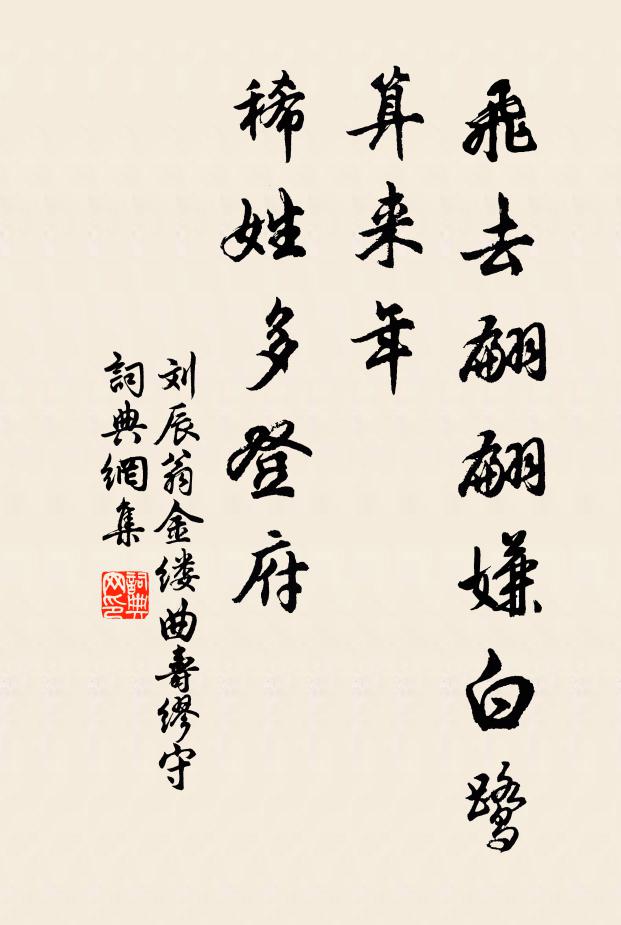 飛去翩翩嫌白鷺
算来年
稀姓多登府
刘辰翁金缕曲壽缪守
詞典網集
詞典网印